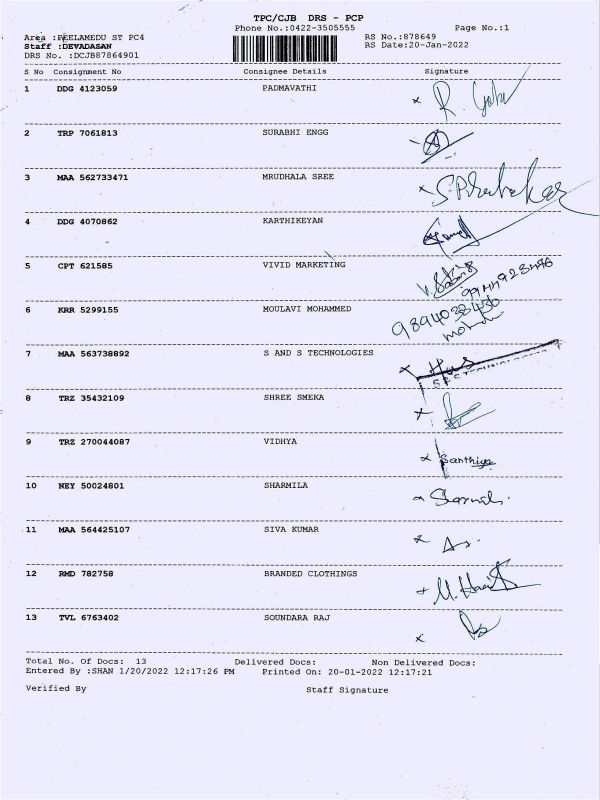 TPC/CJB DRS - PCP
Phone No.:0422-3505555 Page No.:1
Area :PEELAMEDU ST PC4 RS No.:878649
Staff :DEVADASAN RS Date:20-Jan-2022
DRS No. :DCJB87864901
S No Consignment No Consignee Details Signature
1 DDG 4123059 PADMAVATHI
2 TRP 7061813 SURABHI ENGG
3 MAA 562733471 MRUDHALA SREE S.Prabakar
4 DDG 4070862 KARTHIKEYAN
5 CPT 621585 VIVID MARKETING
6 KRR 5299155 MOULAVI MOHAMMED
7 MAA 563738892 S AND S TECHNOLOGIES
8 TRZ 35432109 SHREE SMEKA
9 TRZ 270044087 VIDHYA Santhiya
10 NEY 50024801 SHARMILA Sharmila
11 MAA 564425107 SIVA KUMAR
12 RMD 782758 BRANDED CLOTHINGS
13 TVL 6763402 SOUNDARA RAJ
Total No. Of Docs: 13 Delivered Docs: Non Delivered Docs:
Entered By :SHAN 1/20/2022 12:17:26 PM Printed On: 20-01-2022 12:17:21
Verified By Staff Signature